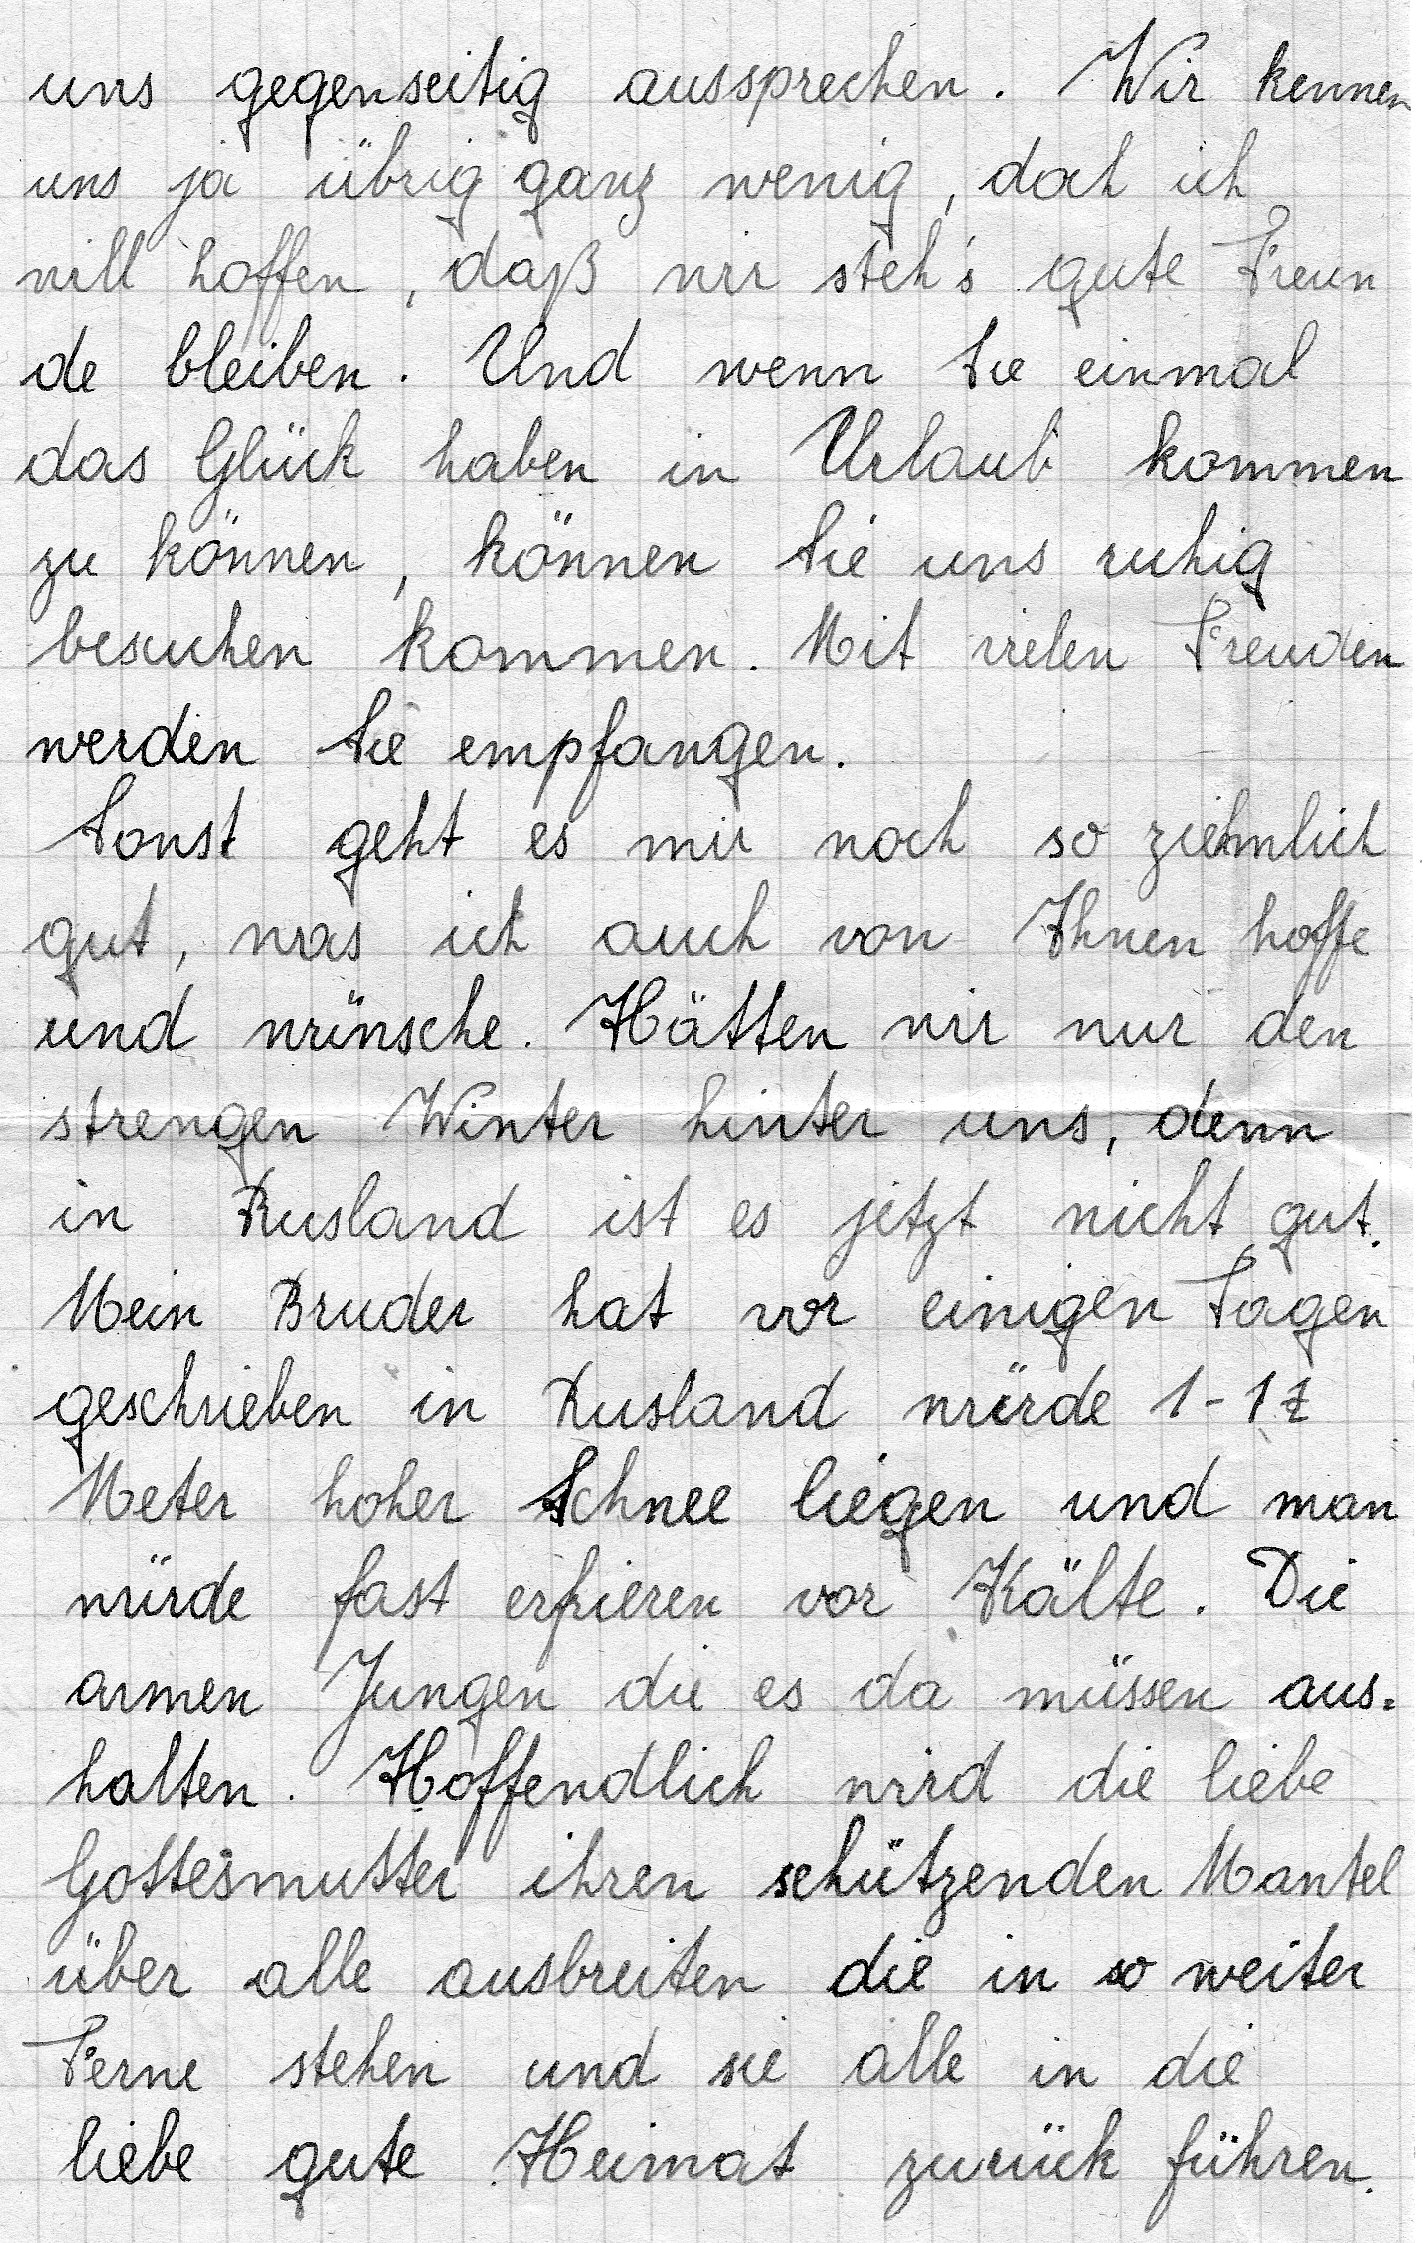 uns gegenseitig aussprechen. Wir kennen
uns ja übrig ganz wenig, doch ich
will hoffen, daß wir steh's gute Freun
de bleiben. Und wenn Sie einmal
das Glück haben in Urlaub kommen
zu können, können Sie uns ruhig
besuchen kommen. Mit vielen Freuden
werden Sie empfangen.
Sonst geht es mir noch so ziehmlich
gut, was ich auch von Ihnen hoffe
und wünsche. Hätten wir nur den
strengen Winter hinter uns, denn
in Rusland ist es jetzt nicht gut.
Mein Bruder hat vor einigen Tagen
geschrieben in Rusland würde 1-1½
Meter hoher Schnee liegen und man
würde fast erfrieren vor Kälte. Die
armen Jungen die es da müssen aus=
halten. Hoffendlich wird die liebe
Gottesmutter ihren schützenden Mantel
über alle ausbreiten die in so weiter
Ferne stehen und sie alle in die
liebe gute Heimat zurück führen.